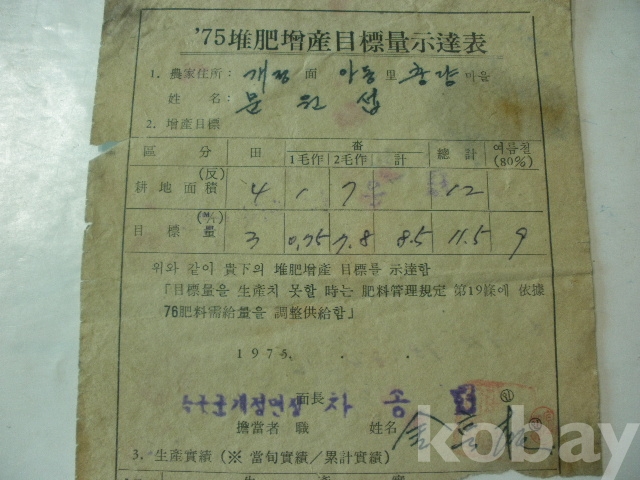 '75堆肥增産目標量示達表
1. 農家住所: 개정面 아동里 마을
姓 名: 문 원 섭
2. 增産目標
區 分 田 畓 總計 여름철
1毛作 2毛作 計 (80%)
耕地面積 (反) 4 1 7 12
目標量 (M/T) 3 0.75 7.8 8.5 11.5 9
위와 같이 貴下의 堆肥增産 目標를 示達함
「目標量을 生產치 못할 時는 肥料管理規定 第19條에 依據
76肥料需給量을 調整供給함」
1975. . .
개정면장 面長 차 송
擔當者 職 姓名 金
3. 生産實績 (※ 當旬實績/累計實績)
kobay